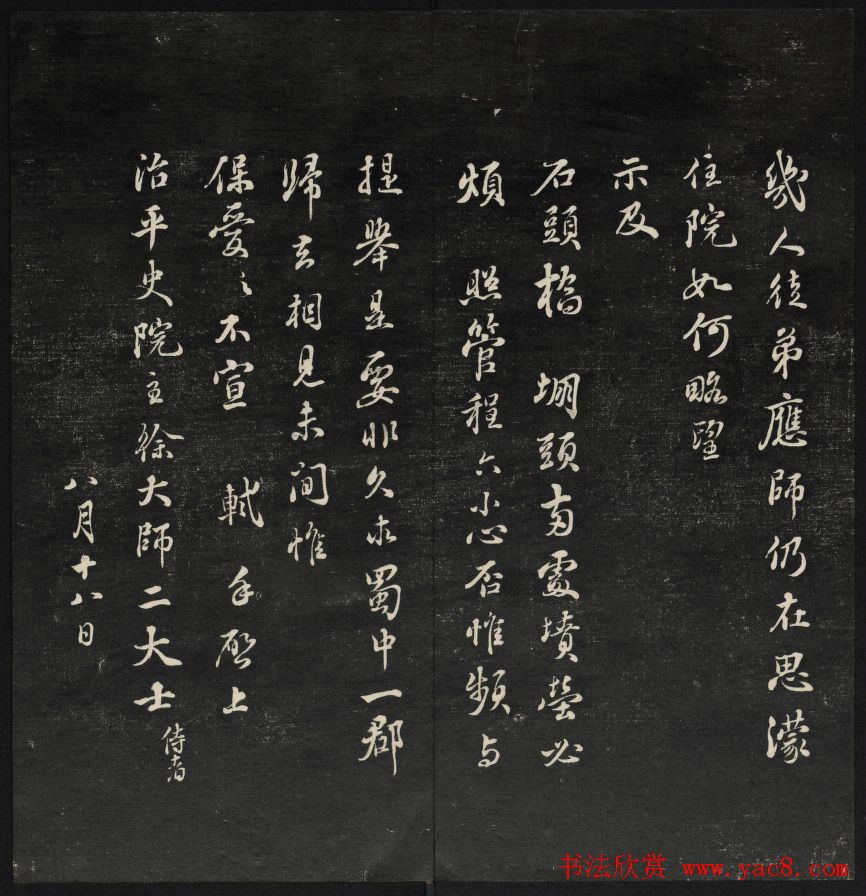 幾人徒弟應師仍在思濛
住院如何略望
示及
石頭橋 堋頭兩處墳塋必
煩 照管程六小心否惟頻與
提舉是要非久求蜀中一郡
歸去相見未間惟
保愛之不宣 軾手啟上
治平史院主徐大師二大士侍者
八月十八日
书法欣赏 www.yac8.com